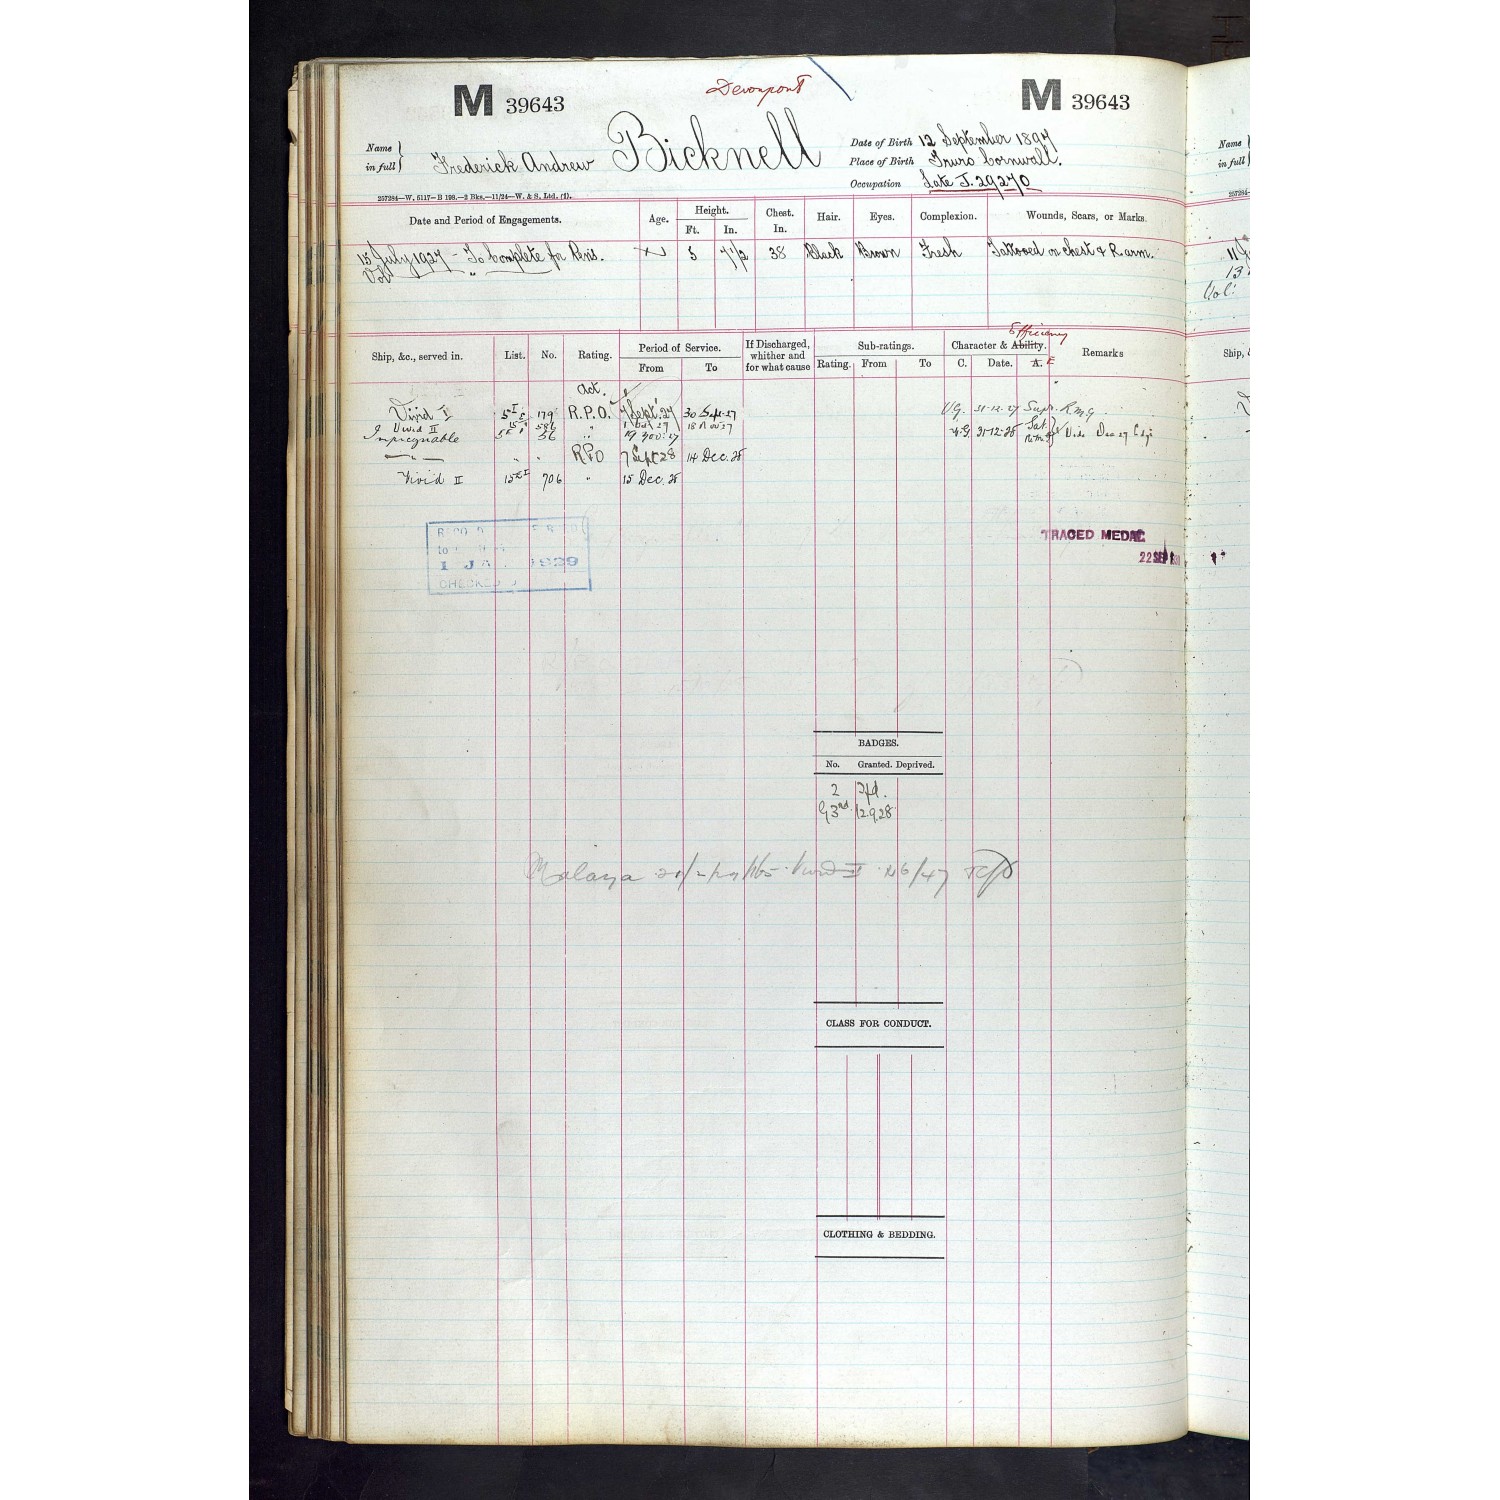 Devonport
M 39643
M 39643
Name in full } Frederick Andrew Bicknell
Date of Birth 12 September 1897
Place of Birth Truro Cornwall.
Occupation Late J. 29270
257284—W. 5117—B 198.—2 Bks.—11/24—W. & S. Ltd. (f).
Date and Period of Engagements. Age. Height. Ft. In. Chest. In. Hair. Eyes. Complexion. Wounds, Scars, or Marks.
15 July 1927 - To Complete for Pens. 5 7 1/2 38 Black Brown Fresh Tattooed on chest & R arm.
Vol: "
Efficiency
Ship, &c., served in. List. No. Rating. Period of Service. From To If Discharged, whither and for what cause Sub-ratings. Rating. From To Character & Ability. C. Date. A. E Remarks
Act.
Vivid I 179 R.P.O. 7 Sept: 27 30 Sept. 27 VG. 31-12-27 Supr. R.M.G.
Vivid II "
Impregnable 56 " V.G. 31-12-28 Sat.
" " " RPO 7 Sept 28 14 Dec. 28
Vivid II 706 " 15 Dec. 28
1 JA 1929
CHECKED
TRACED MEDAL
22 SEP
BADGES.
No. Granted. Deprived.
2 Tfd.
G 3rd. 12.9.28
Malaya
CLASS FOR CONDUCT.
CLOTHING & BEDDING.
Name
in full
Ship,